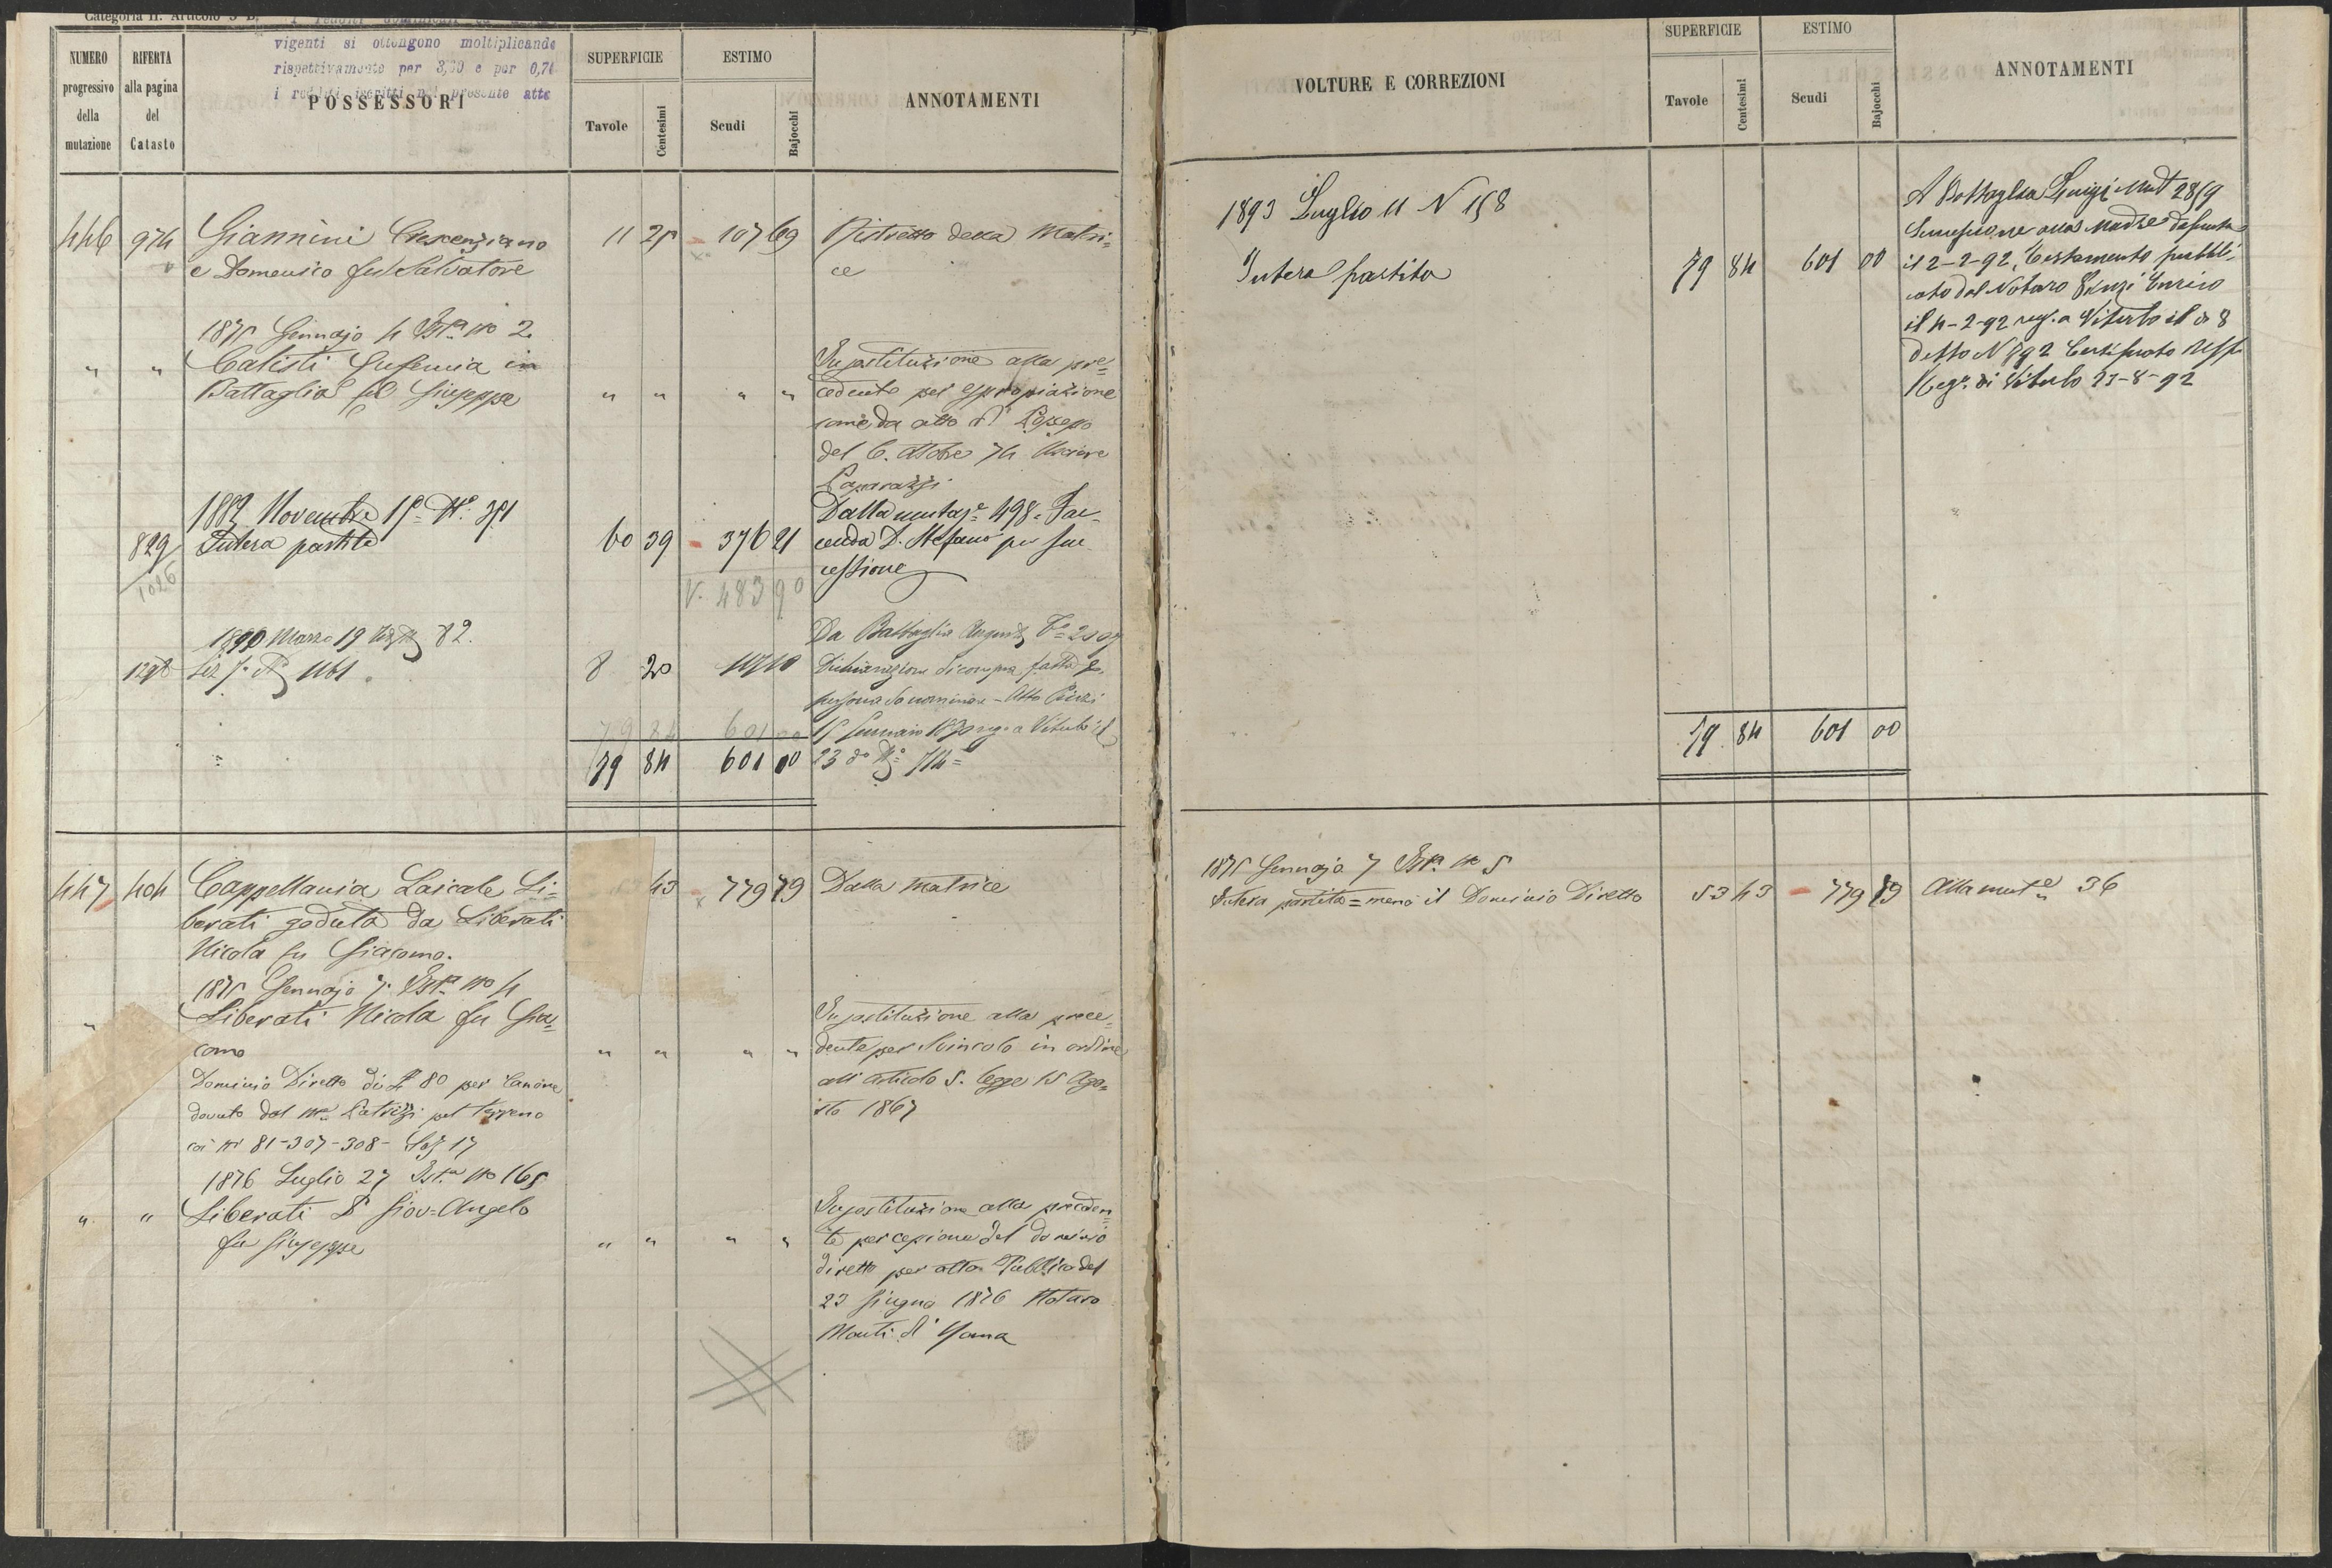 Categoria II. Articolo 3 B.
vigenti si ottengono moltiplicando
rispettivamente per 3,30 e per 0,74
i redditi iscritti nel presente atto
NUMERO progressivo della mutazione
RIFERTA alla pagina del Catasto
POSSESSORI
SUPERFICIE
Tavole
Centesimi
ESTIMO
Scudi
Bajocchi
ANNOTAMENTI
446 974 Giannini Crescenziano 11 25 107 69 Ristretto della Matri=
e Domenico fu Salvatore ce
1875 Gennajo 4 Ista No 2
" " Calisti Eufemia in Insostituzione alla pre=
Battaglia fu Giuseppe " " " " cedente per espropriazione
come da atto di Possesso
del 6. Ottobre 74 Usciere
Paparazzi
1889 Novembre 15 No 351 Dalla mutaze 498. Fac=
829 Intera partita 60 39 376 21 cenda D. Stefano per suc
1026 V. 483 90 cessione
1890 Marzo 19 82. Da Battaglia
1298 Sez 7a No 1161 8 20 117 10 Dichiarazione di compra fatta
persona da nominare - Atto
79 84 601 00 15 Gennaio a Viterbo il
79 84 601 00 23 do No 714=
447 404 Cappellania Laicale Li= 43 779 79 Dalla Matrice
berati goduta da Liberati
Nicola fu Giacomo.
1875 Gennajo 7. Ista No 4
" Liberati Nicola fu Gia= Insostituzione alla prece=
como " " " " dente per Svincolo in ordine
Dominio Diretto di 80 per Canone all' articolo 5. legge 15 Ago=
dovuto dal Patrizi pel terreno sto 1867
coi Ni 81-307-308- Sez 17
1876 Luglio 27 Ista No 165
" " Liberati D Giov=Angelo Insostituzione alla preceden=
fu Giuseppe " " " " te per cessione del dominio
diretto per atto Pubblico del
23 Giugno 1876 Notaro
Monti di Roma
VOLTURE E CORREZIONI
SUPERFICIE
Tavole
Centesimi
ESTIMO
Scudi
Bajocchi
ANNOTAMENTI
1893 Luglio 11 N 158 A Battaglia Luigi Mut 2859
Successione alla Madre defunta
Intera partita 79 84 601 00 il 2-2-92, testamento pubbli=
cato dal Notaro Enrico
il 4-2-92 reg. a Viterbo il dì 8
detto N 892 Certificato
Rege. di Viterbo 23-8-92
79 84 601 00
1875 Gennajo 7 Ista No 5
Intera partita = meno il Dominio Diretto 53 43 779 79 Alla mute 36